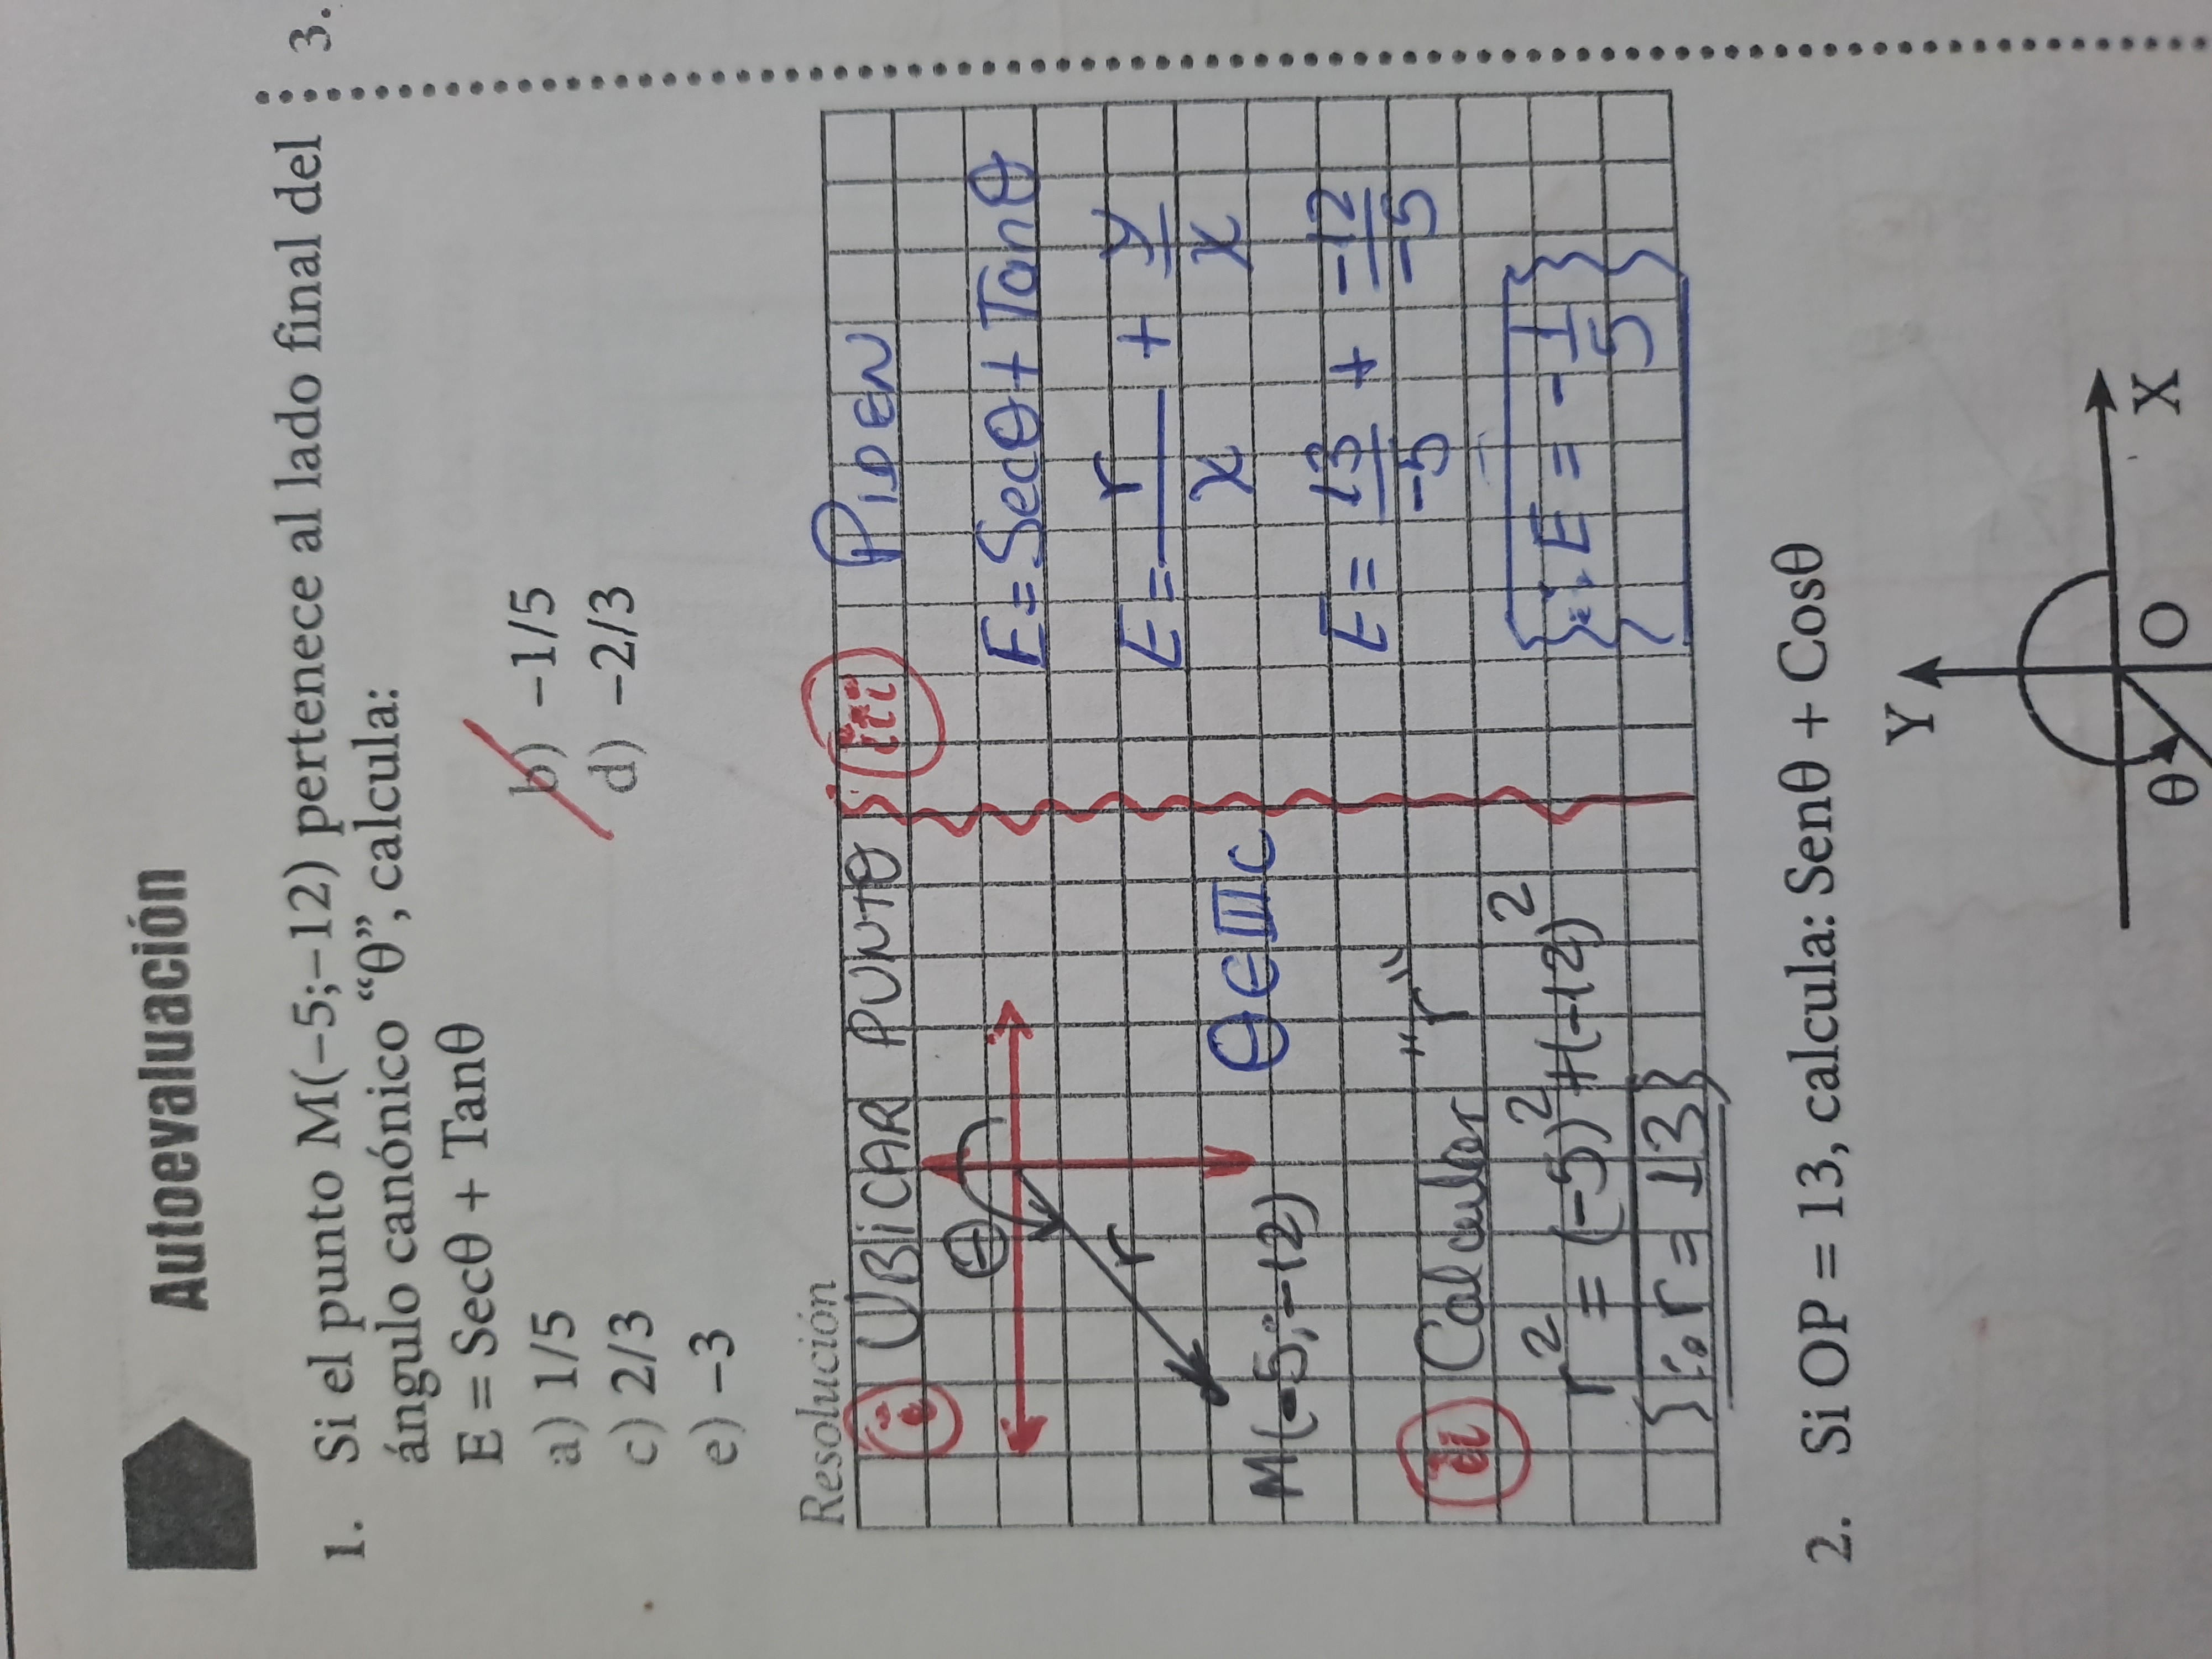 Autoevaluación
1. Si el punto M(–5;–12) pertenece al lado final del
ángulo canónico “θ”, calcula:
E = Secθ + Tanθ
a) 1/5
b) –1/5
c) 2/3
d) –2/3
e) –3
Resolución
i UBiCAR PUNTO
θ
r
M(-5;-12)
θ∈IIIC
ii Calcular "r"
r² = (-5)²+(-12)²
∴ r = 13
iii PIDEN
E = Secθ + Tanθ
E = r/x + y/x
E = 13/-5 + -12/-5
∴ E = -1/5
2. Si OP = 13, calcula: Senθ + Cosθ
Y
θ
O
X
3.